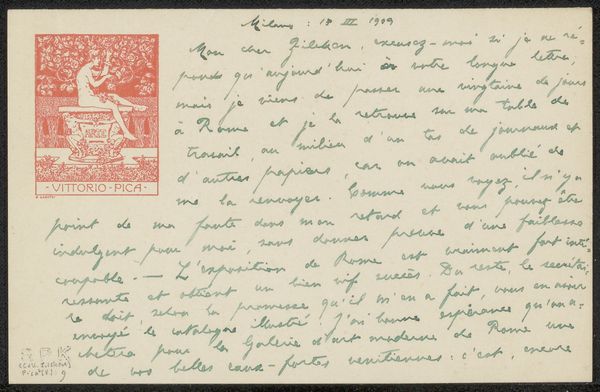 Milano : 17 III 1909
Mon cher Zilcken, excusez-moi si je ne ré-
ponds qu'aujourd'hui à votre longue lettre,
mais je viens de passer une vingtaine de jours
à Rome et je la retrouve sur ma table de
travail, au milieu d'un tas de journaux et
d'autres papiers, car on avait oublié de
me la renvoyer. Comme vous voyez, il n'y a
point de ma faute dans mon retard et vous pouvez être
indulgent pour moi, sans donner preuve d'une faiblesse
coupable. — L'exposition de Rome est vraiment fort inté-
ressante et obtient un bien vif succès. Du reste, le secrétai-
re doit selon la promesse qu'il m'en a fait, vous en avoir
envoyé le catalogue illustré. J'ai bonne espérance qu'on a-
chètera pour la Galerie d'art moderne de Rome une
de vos belles eaux-fortes venitiennes: c'est, encore
ARTE
- VITTORIO - PICA -
RPK
(Coll. Zilcken)
Pica (V) 9